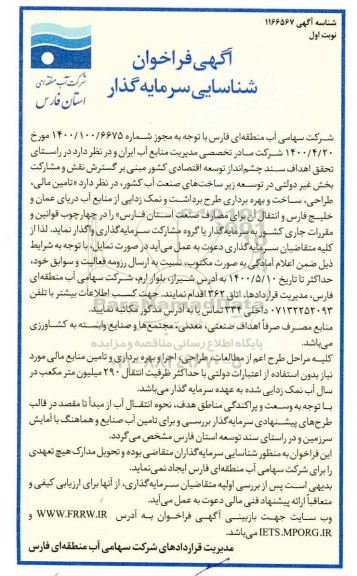 شناسه آگهی ۱۱۶۶۵۶۷
نوبت اول
شرکت آب منطقه‌ای
استان فارس
آگهی فراخوان
شناسایی سرمایه‌گذار
شرکت سهامی آب منطقه‌ای فارس با توجه به مجوز شماره ۱۴۰۰/۱۰۰/۶۶۷۵ مورخ
۱۴۰۰/۴/۲۰ شرکت مادر تخصصی مدیریت منابع آب ایران و در نظر دارد در راستای
تحقق اهداف سند چشم‌انداز توسعه اقتصادی کشور مبنی بر گسترش نقش و مشارکت
بخش غیر دولتی در توسعه زیر ساخت‌های صنعت آب کشور، در نظر دارد «تامین مالی،
طراحی، ساخت و بهره برداری طرح برداشت و نمک زدایی از منابع آب دریای عمان و
خلیج فارس و انتقال آن برای مصارف صنعت استان فارس» را در چهارچوب قوانین و
مقررات جاری کشور به سرمایه‌گذار یا گروه مشارکت سرمایه‌گذاری واگذار نماید. لذا از
کلیه متقاضیان سرمایه‌گذاری دعوت به عمل می‌آید در صورت تمایل، با توجه به شرایط
ذیل ضمن اعلام آمادگی به صورت مکتوب، نسبت به ارسال رزومه فعالیت و سوابق خود،
حداکثر تا تاریخ ۱۴۰۰/۵/۱۰ به آدرس شیراز، بلوار ارم، شرکت سهامی آب منطقه‌ای
فارس، مدیریت قراردادها، اتاق ۳۶۲ اقدام نمایند. جهت کسب اطلاعات بیشتر با تلفن
۰۷۱۳۲۲۵۲۰۹۳ داخلی ۳۳۴ تماس یا به آدرس مذکور مکاتبه نمایید.
منابع مصرف صرفاً اهداف صنعتی، معدنی، مجتمع‌ها و صنایع وابسته به کشاورزی
می‌باشد.
کلیه مراحل طرح اعم از مطالعات، طراحی، اجرا و بهره برداری و تامین منابع مالی مورد
نیاز بدون استفاده از اعتبارات دولتی با حداکثر ظرفیت انتقال ۲۹۰ میلیون متر مکعب در
سال آب نمک زدایی شده به عهده سرمایه گذار می‌باشد.
با توجه به وسعت و پراکندگی مناطق هدف، نحوه انتقال آب از مبدأ تا مقصد در قالب
طرح‌های پیشنهادی سرمایه‌گذار بررسی و برای تامین آب صنایع و هماهنگ با آمایش
سرزمین و در راستای سند توسعه استان فارس مشخص می‌گردد.
این فراخوان به منظور شناسایی سرمایه‌گذاران متقاضی بوده و تحویل مدارک هیچ تعهدی
را برای شرکت سهامی آب منطقه‌ای فارس ایجاد نمی‌نماید.
بدیهی است پس از بررسی اولیه متقاضیان سرمایه‌گذاری، از آنها برای ارزیابی کیفی و
متعاقباً ارائه پیشنهاد فنی مالی دعوت به عمل می‌آید.
وب سایت جهت بازبینی آگهی فراخوان به آدرس WWW.FRRW.IR و
IETS.MPORG.IR می‌باشد.
مدیریت قراردادهای شرکت سهامی آب منطقه‌ای فارس